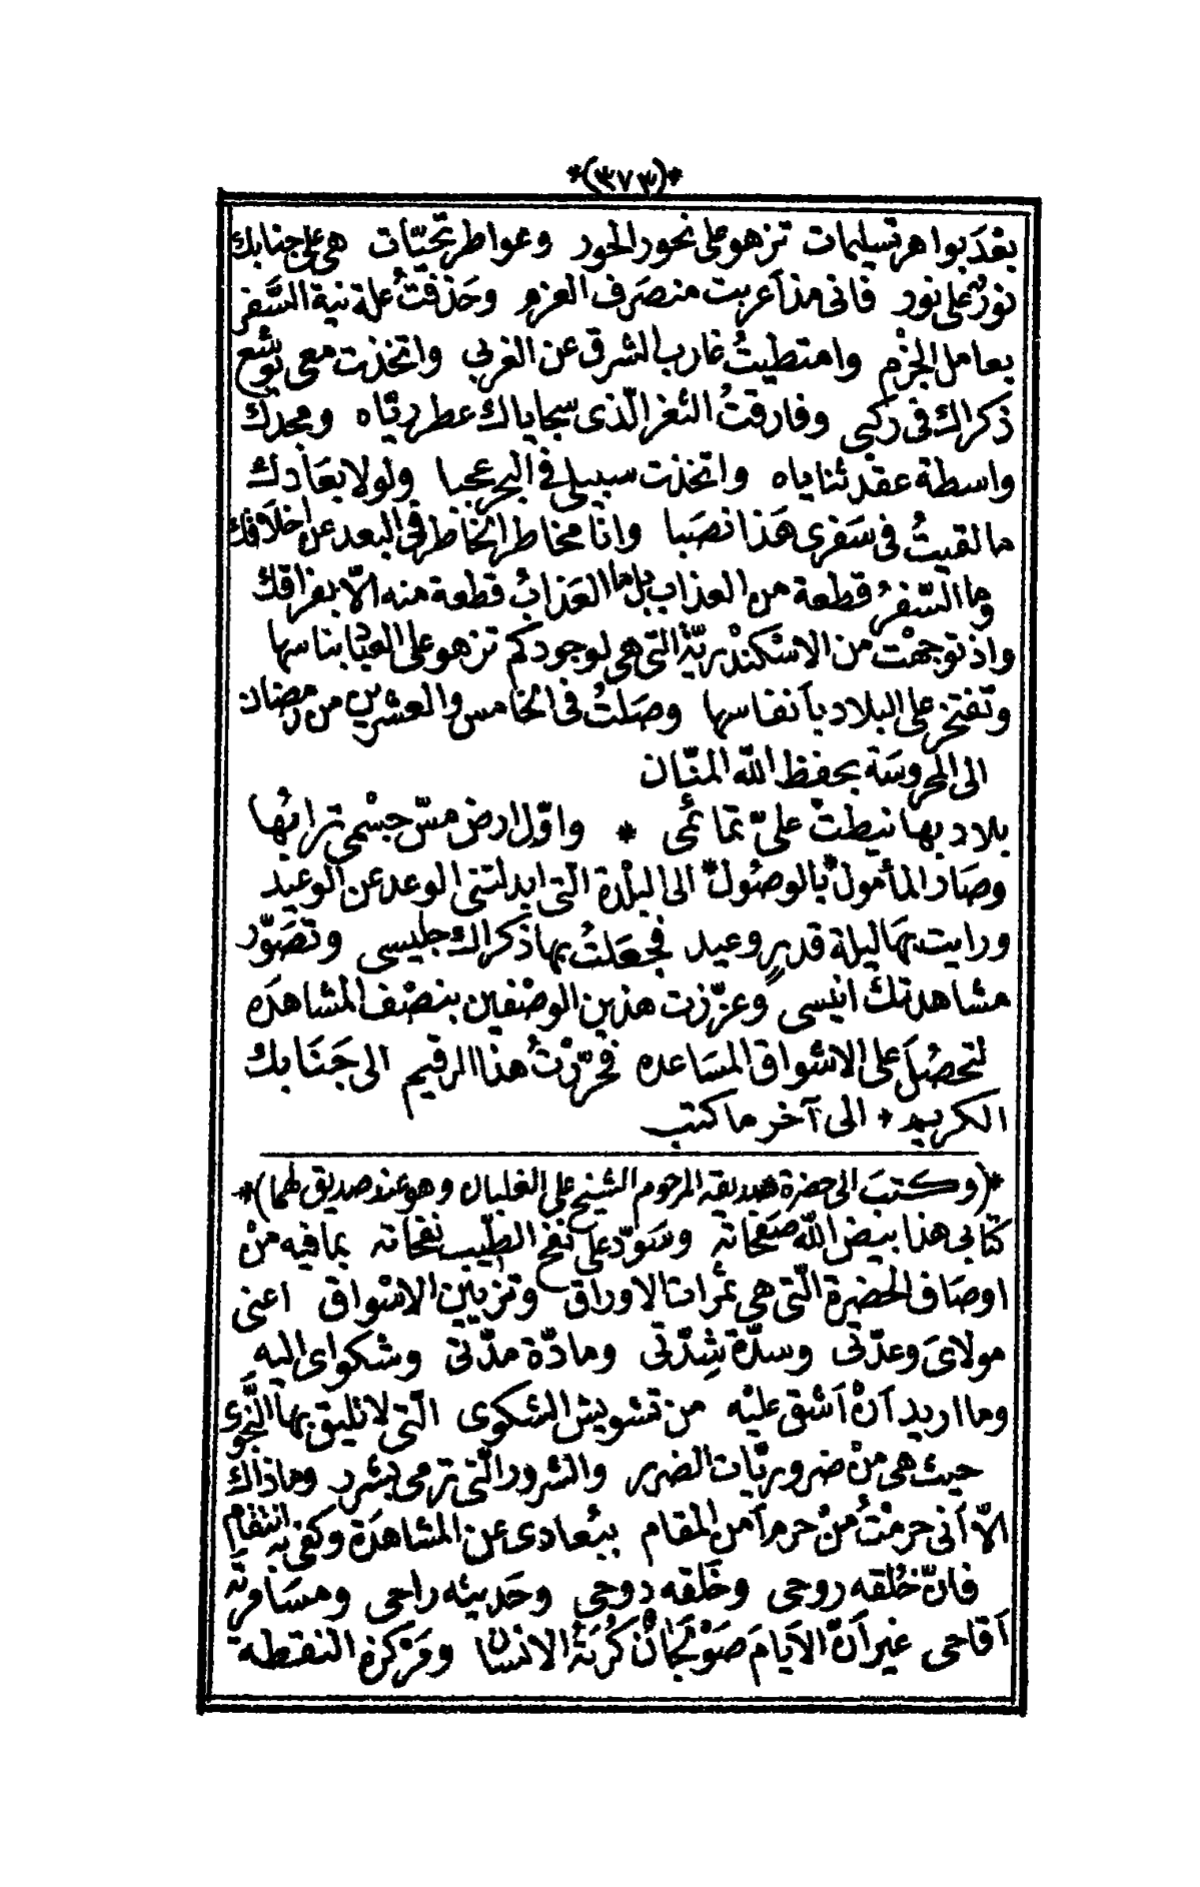 *(٣٧٣)*
بعْدَ بواهر تسليمات تزهو على نحور الحور وعواطر تحيّات هى على جنابك
نورٌ على نور فانى مذ أعربت منصرف العزم وحَذفتُ علة نية السَّفر
بعامل الجزْم وامتطيتُ غارب الشرق عن الغربى واتخذت معى يوشع
ذكراك فى ركبى وفارقتُ الثغر الّذى سجاياك عطر ريّاه ومجدك
واسطة عقد ثناياه واتخذت سبيلى فى البحر عجبا ولولا بعَادك
ما لقيتُ فى سَفرى هَذا نصَبا وانا مخاطر الخاطر فى البعد عن اخلاقك
وما السّفرُ قطعة من العذاب بل ما العَذابُ قطعة منه الّا بفراقك
واذ توجهْت من الاسْكنْدريّة التى هى لوجودكم تزهو على العباد بناسها
وتفتخر على البلاد بأنفاسها وصَلتُ فى الخامس والعشرين من رمضان
الى المحروسَة بحفظ اللّه المنّان
بلاد بها نيطتْ علىّ تمائمى * واوّل ارض مسّ جسْمى ترابُها
وصَار المأمول بالوصُول الى البلْدة التى ابدلتنى الوعد عن الوعيد
ورايت بهَا ليلة قدرٍ وعيد فجعَلتُ بها ذكراك جليسى وتصَوّر
مشاهدتك انيسى وعزّزت هذين الوصْفين بنصْف المشاهدَه
لتحصُلَ على الاشواق المسَاعده فحَرّرْتُ هذا الرقيم الى جَنَابك
الكريم * الى آخر ما كتب
*(وكتبَ الى حضرة صديقه المرحوم الشيخ على الغلبان وهو عند صديق لهما)*
كتابى هذا بيض اللّه صَفحاته وسَوّد على نفح الطّيب نفحاته بما فيه منْ
اوصَاف الحضرة الّتى هى ثمرات الاوراق وتزيين الاسْواق اعنى
مولاىَ وعدّتى وسدّة شِدّتى ومادّة مدّتى وشكواى اليه
وما اريد أنْ أشق عليْه من تشويش الشكوى الّتى لا تليق بها النَّجوى
حيث هى منْ ضروريّات الضرر والشرور الّتى ترمى بشرر وما ذاك
الّا أنى حرمْتُ منْ حرم أمن المقام ببُعادى عن المشاهدَة وكفى به انتقام
فانّ خُلقه روحى وخَلقه دوحى وحَديثه راحى ومسَامرتَه
أقاحى غير أنّ الأيامَ صَوْلجَانٌ كُرَتهُ الانسان ومَرْكزه النقطة